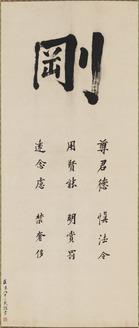 剛
尊君德 慎法令
用賢能 明賞罰
遠念慮 禁奢侈